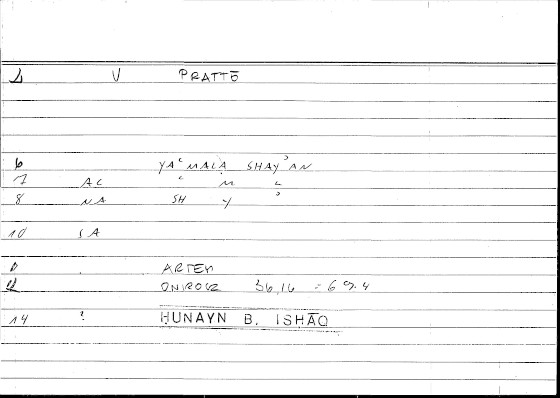 1 V PRATTŌ
6 YAʿMALA SHAYʾAN
7 AL ʿ M L
8 NA SH Y ʾ
10 SA
11 ARTEM
12 ONIROCR 36,16 = 69.4
14 ? HUNAYN B. ISHĀQ